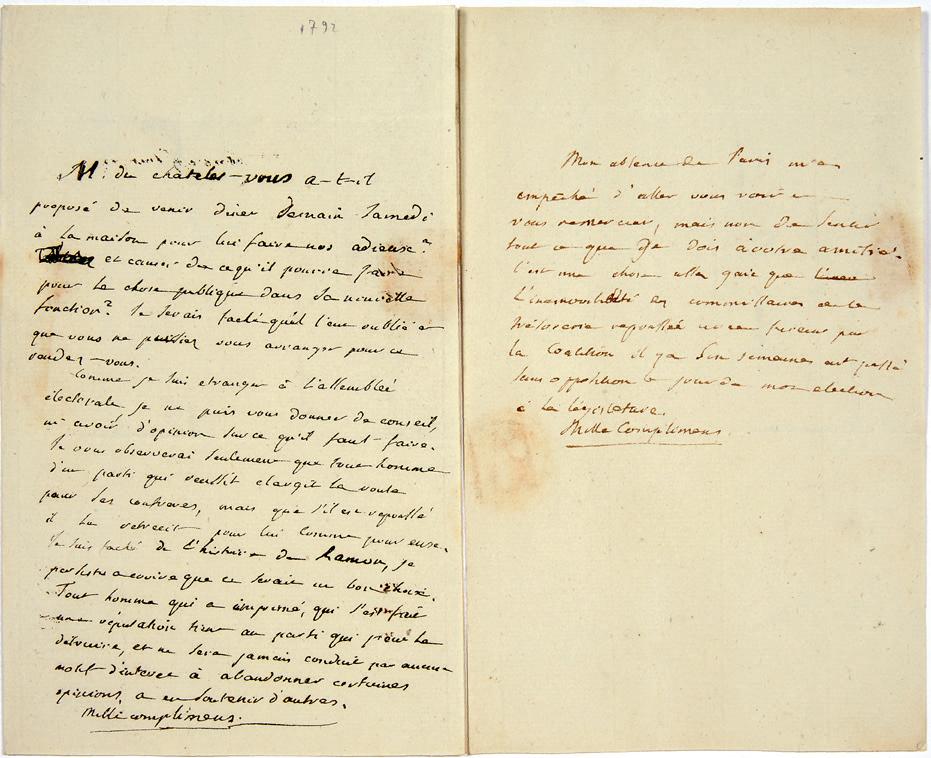 1792
M. du chatelet-vous a-t-il
proposé de venir diner demain Samedi
à la maison pour lui faire nos adieux?
et causer de ce qu'il pourra faire
pour la chose publique dans sa nouvelle
fonction? Je serais faché qu'il l'eut oublié et
que vous ne pussiez vous arranger pour ce
rendez-vous.
Comme je suis etranger à l'assemblée
électorale je ne puis vous donner de conseil,
ni avoir d'opinion sur ce qu'il faut faire.
Je vous observerai seulement que tout homme
d'un parti qui reussit elargit la route
pour ses confreres, mais que s'il est repoussé
il la retrecit pour lui comme pour eux.
Je suis faché de l'histoire de hamon, je
persiste a croire que ce serait un bon choix.
Tout homme qui a imprimé, qui s'est fait
une réputation tient au parti qui peut la
détruire, et ne sera jamais conduit par aucun
motif d'interet à abandonner certaines
opinions, a en soutenir d'autres.
Mille complimens.
Mon absence de Paris m'a
empeché d'aller vous voir et
vous remercier, mais non de sentir
tout ce que je dois à votre amitié.
C'est une chose assez gaie que
l'inamovibilité en commissaires de la
trésorerie repoussée avec fureur par
la Coalition il y a six semaines ait passé
sans opposition le jour de mon election
à la législature.
Mille Complimens